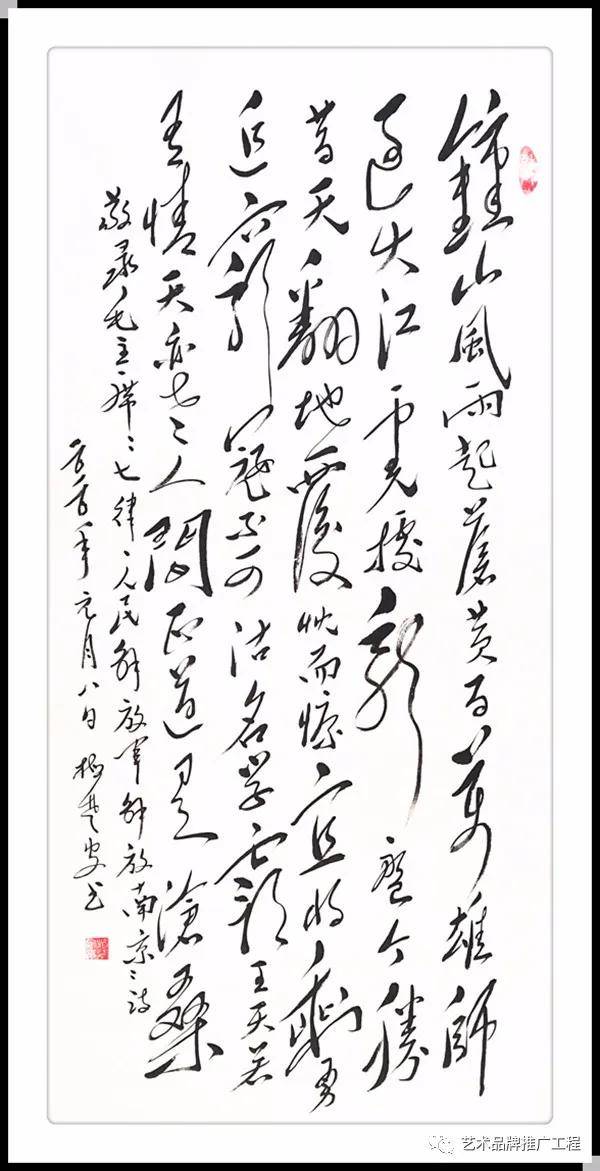 鍾山風雨起蒼黄百萬雄師
過大江虎據龍盤今勝
昔天翻地覆慨而慷宜将剩勇
追窮寇不可沽名學霸王天若
有情天亦老人間正道是滄桑
敬录毛主席七律人民解放军解放南京诗
年元月八日
艺术品牌推广工程